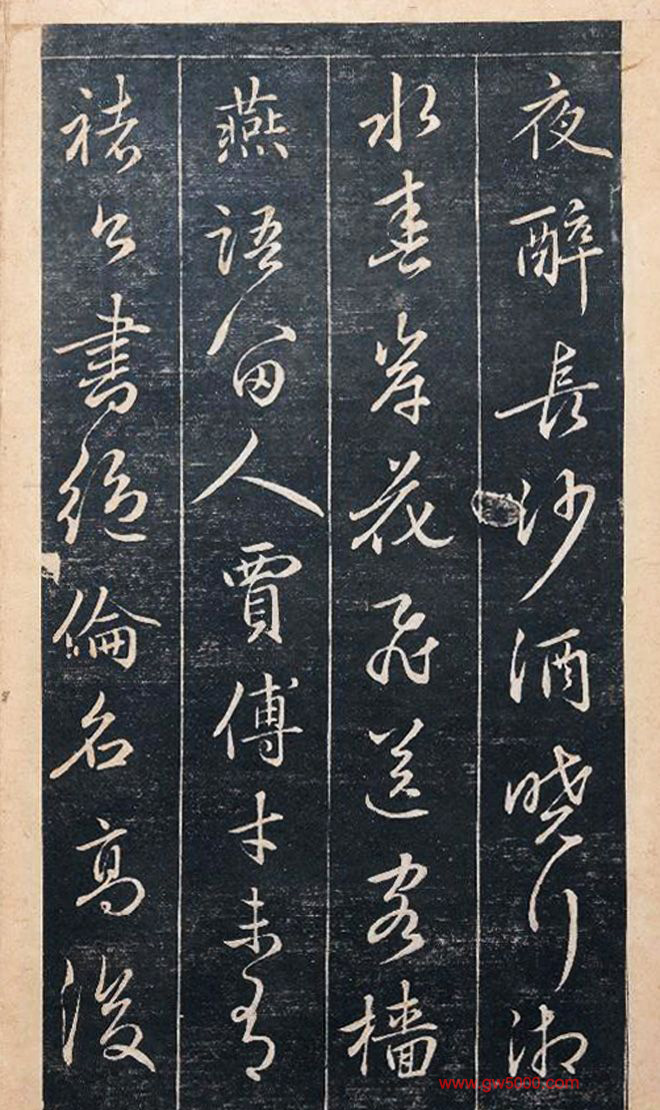 夜醉長沙酒曉行湘
水春岸花飛送客檣
燕語留人賈傅才未有
褚公書絕倫名高後
www.gw5000.com